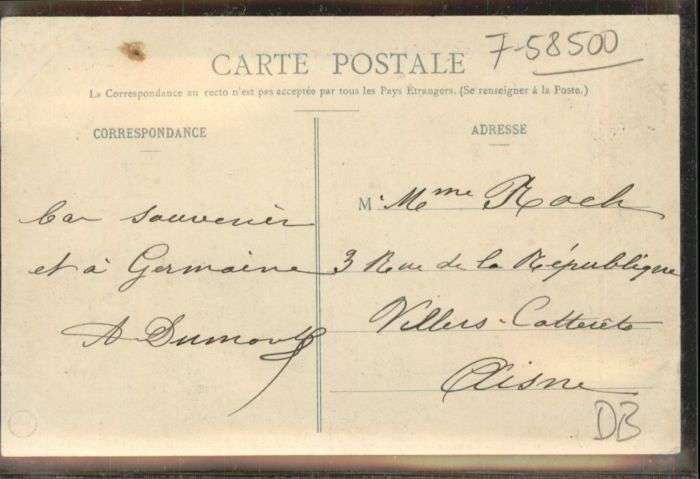 7-58500
CARTE POSTALE
La Correspondance au recto n'est pas acceptée par tous les Pays Étrangers. (Se renseigner à la Poste.)
CORRESPONDANCE
ADRESSE
souvenir
et à Germaine
A Dumont
M Mme Roch
3 Rue de la République
Villers-Cotterêts
Aisne
DB